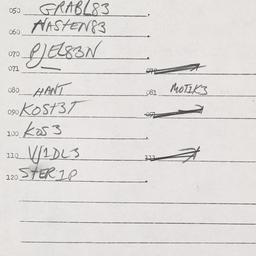 050 GRABL83
060 NASTEN83
070 PJEL83N
071
080 HANT 081 MOTIK3
090 KOST3T
100 KOS3
110 VJ1DL3
120 STER1P